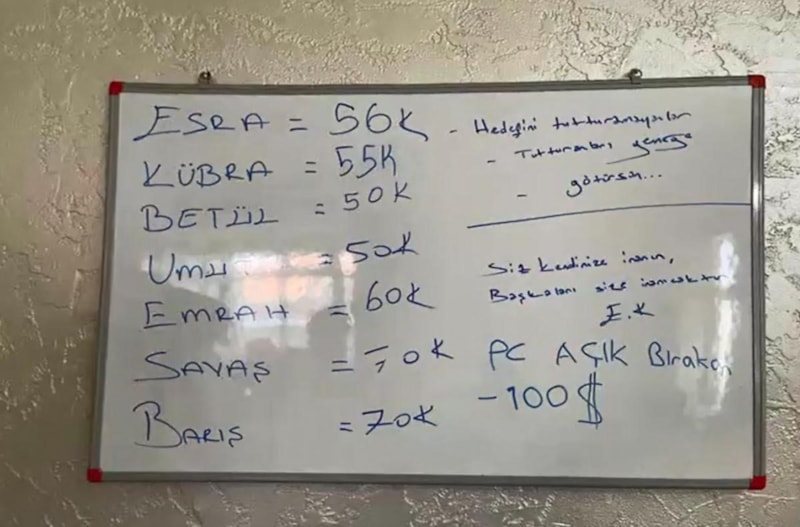 ESRA = 56K
KÜBRA = 55K
BETÜL = 50K
= 50K
EMRAH = 60K
SAVAŞ = 70K
BARIŞ = 70K
- Hedefini tutturamayanlar
- Tutturanları yemeğe
- götürsün...
Siz kendinize inanın,
Başkaları size inanacaktır
E.K
PC AÇIK Bırakan
-100$